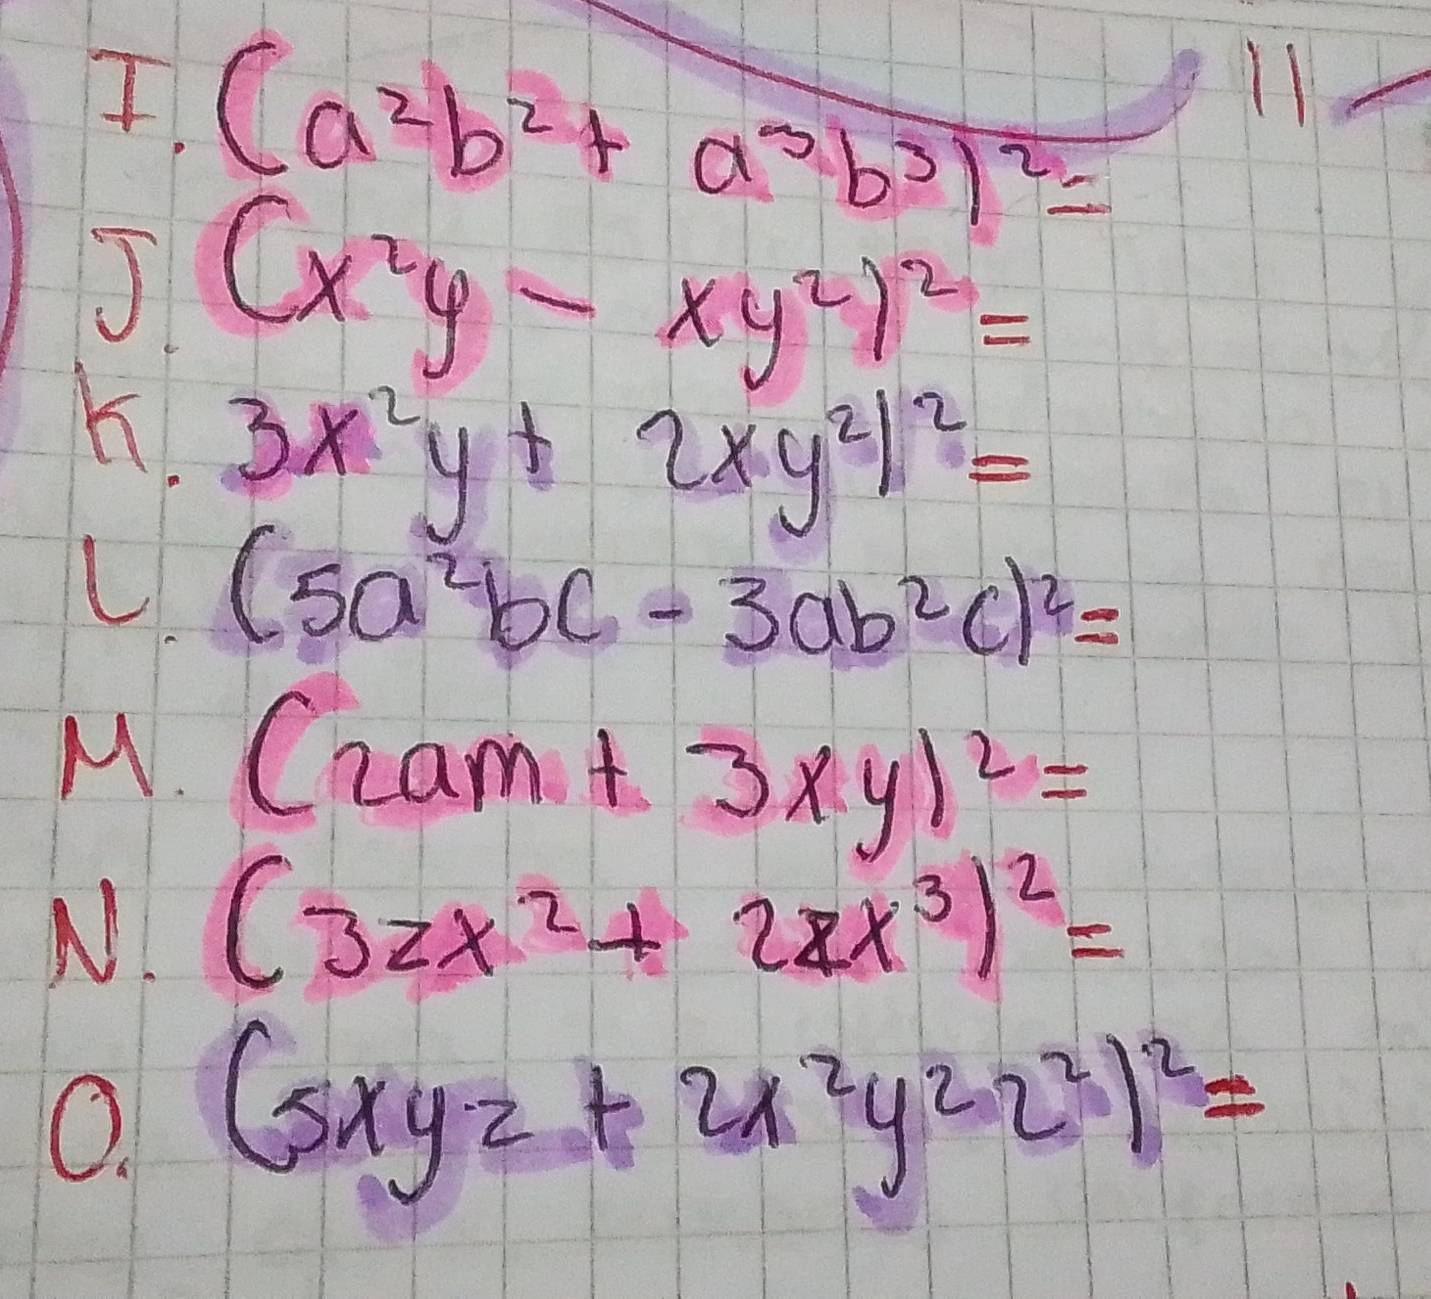 I. (a²b² + a³b³)² =
11
J. (x²y - xy²)² =
K. 3x²y + 2xy²)² =
L. (5a²bc - 3ab²c)² =
M. (2am + 3xy)² =
N. (3zx² + 2zx³)² =
O. (5xyz + 2x²y²z²)² =